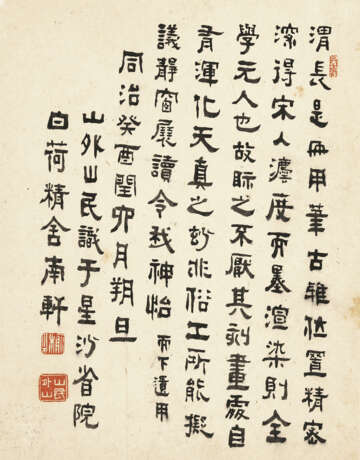 渭長是冊用筆古雅位置精密
深得宋人灋度而墨渲染則全
學元人也故眎之不厭其刻畫處自
有渾化天真之妙非俗工所能擬
議靜窗展讀令我神怡 而下遺用
同治癸酉閏卯月朔旦
山外山民識于星沙省院
白荷精舍南軒
山民
山外